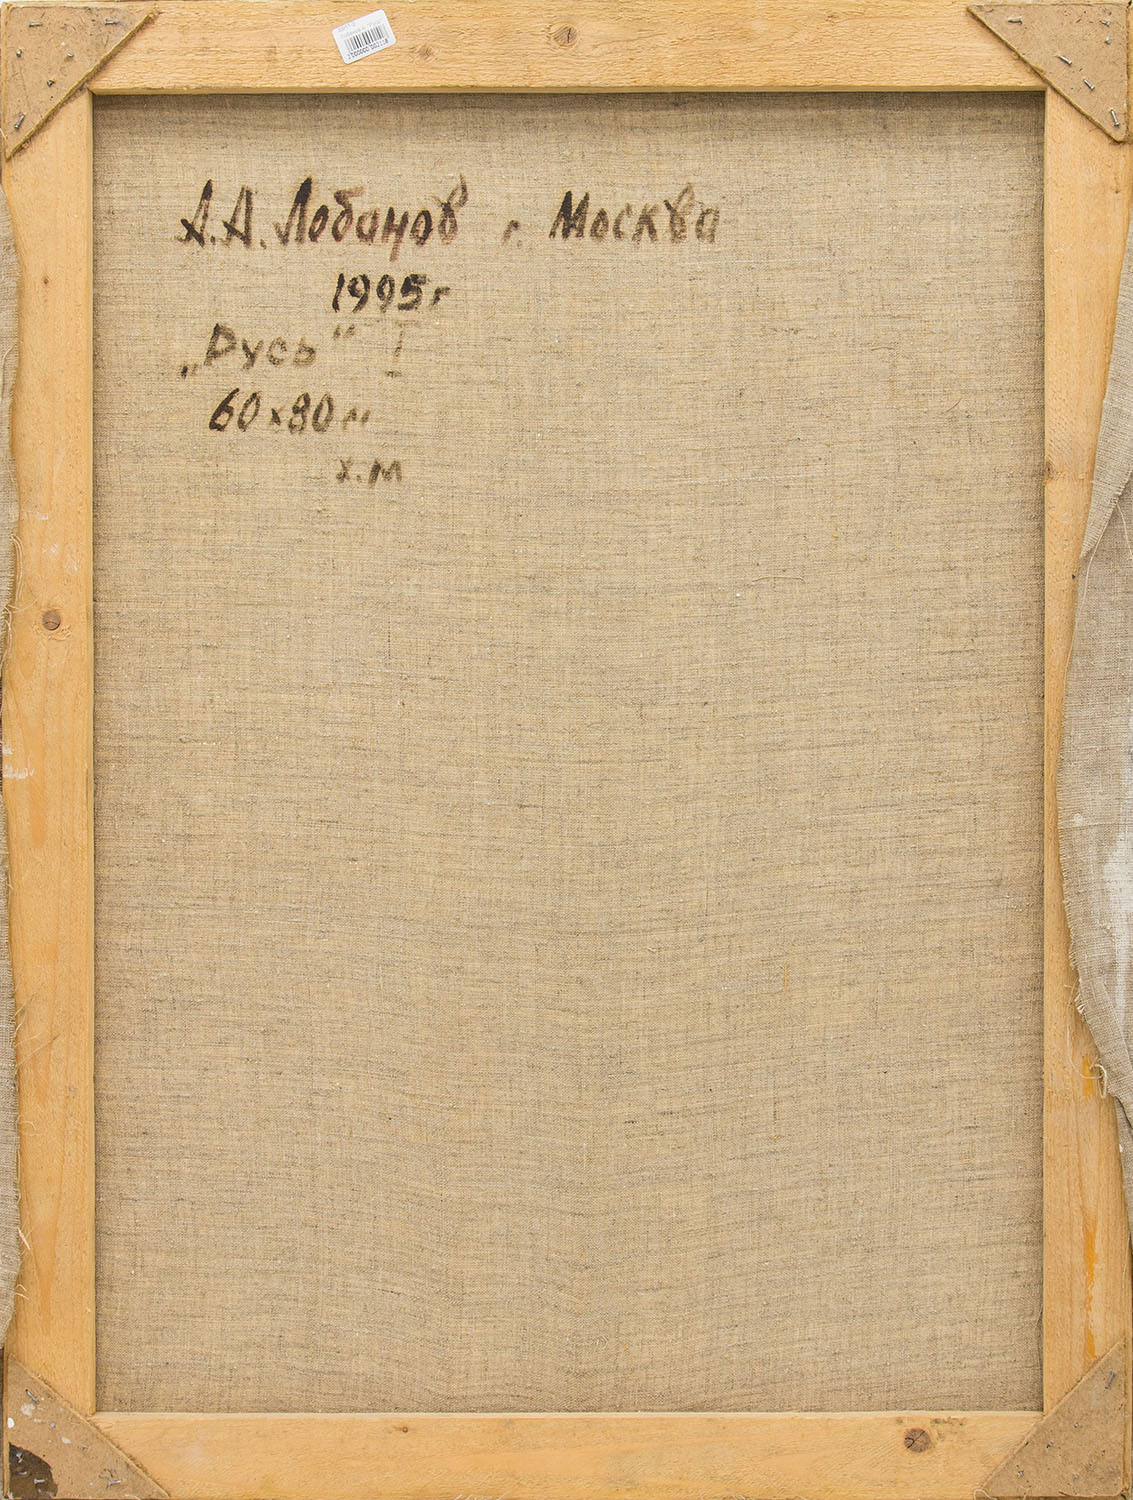 А.А. Лобанов г. Москва
1995г
„Русь" I
60х80м
х.м